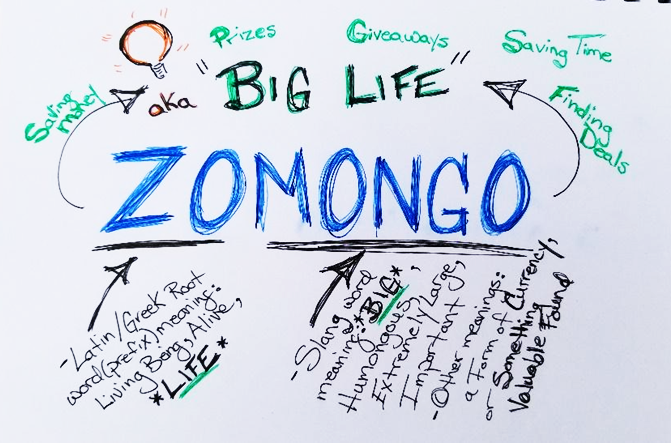 Prizes
Giveaways
Saving Time
Saving
money
aka "BIG LIFE"
Finding
Deals
ZOMONGO
-Latin/Greek Root
word(prefix)meaning:
Living Being, Alive,
*LIFE*
-Slang word
meaning:*BIG*
Humongous,
Extremely Large,
Important,
-Other meanings:
a Form of Currency,
or Something
Valuable Found